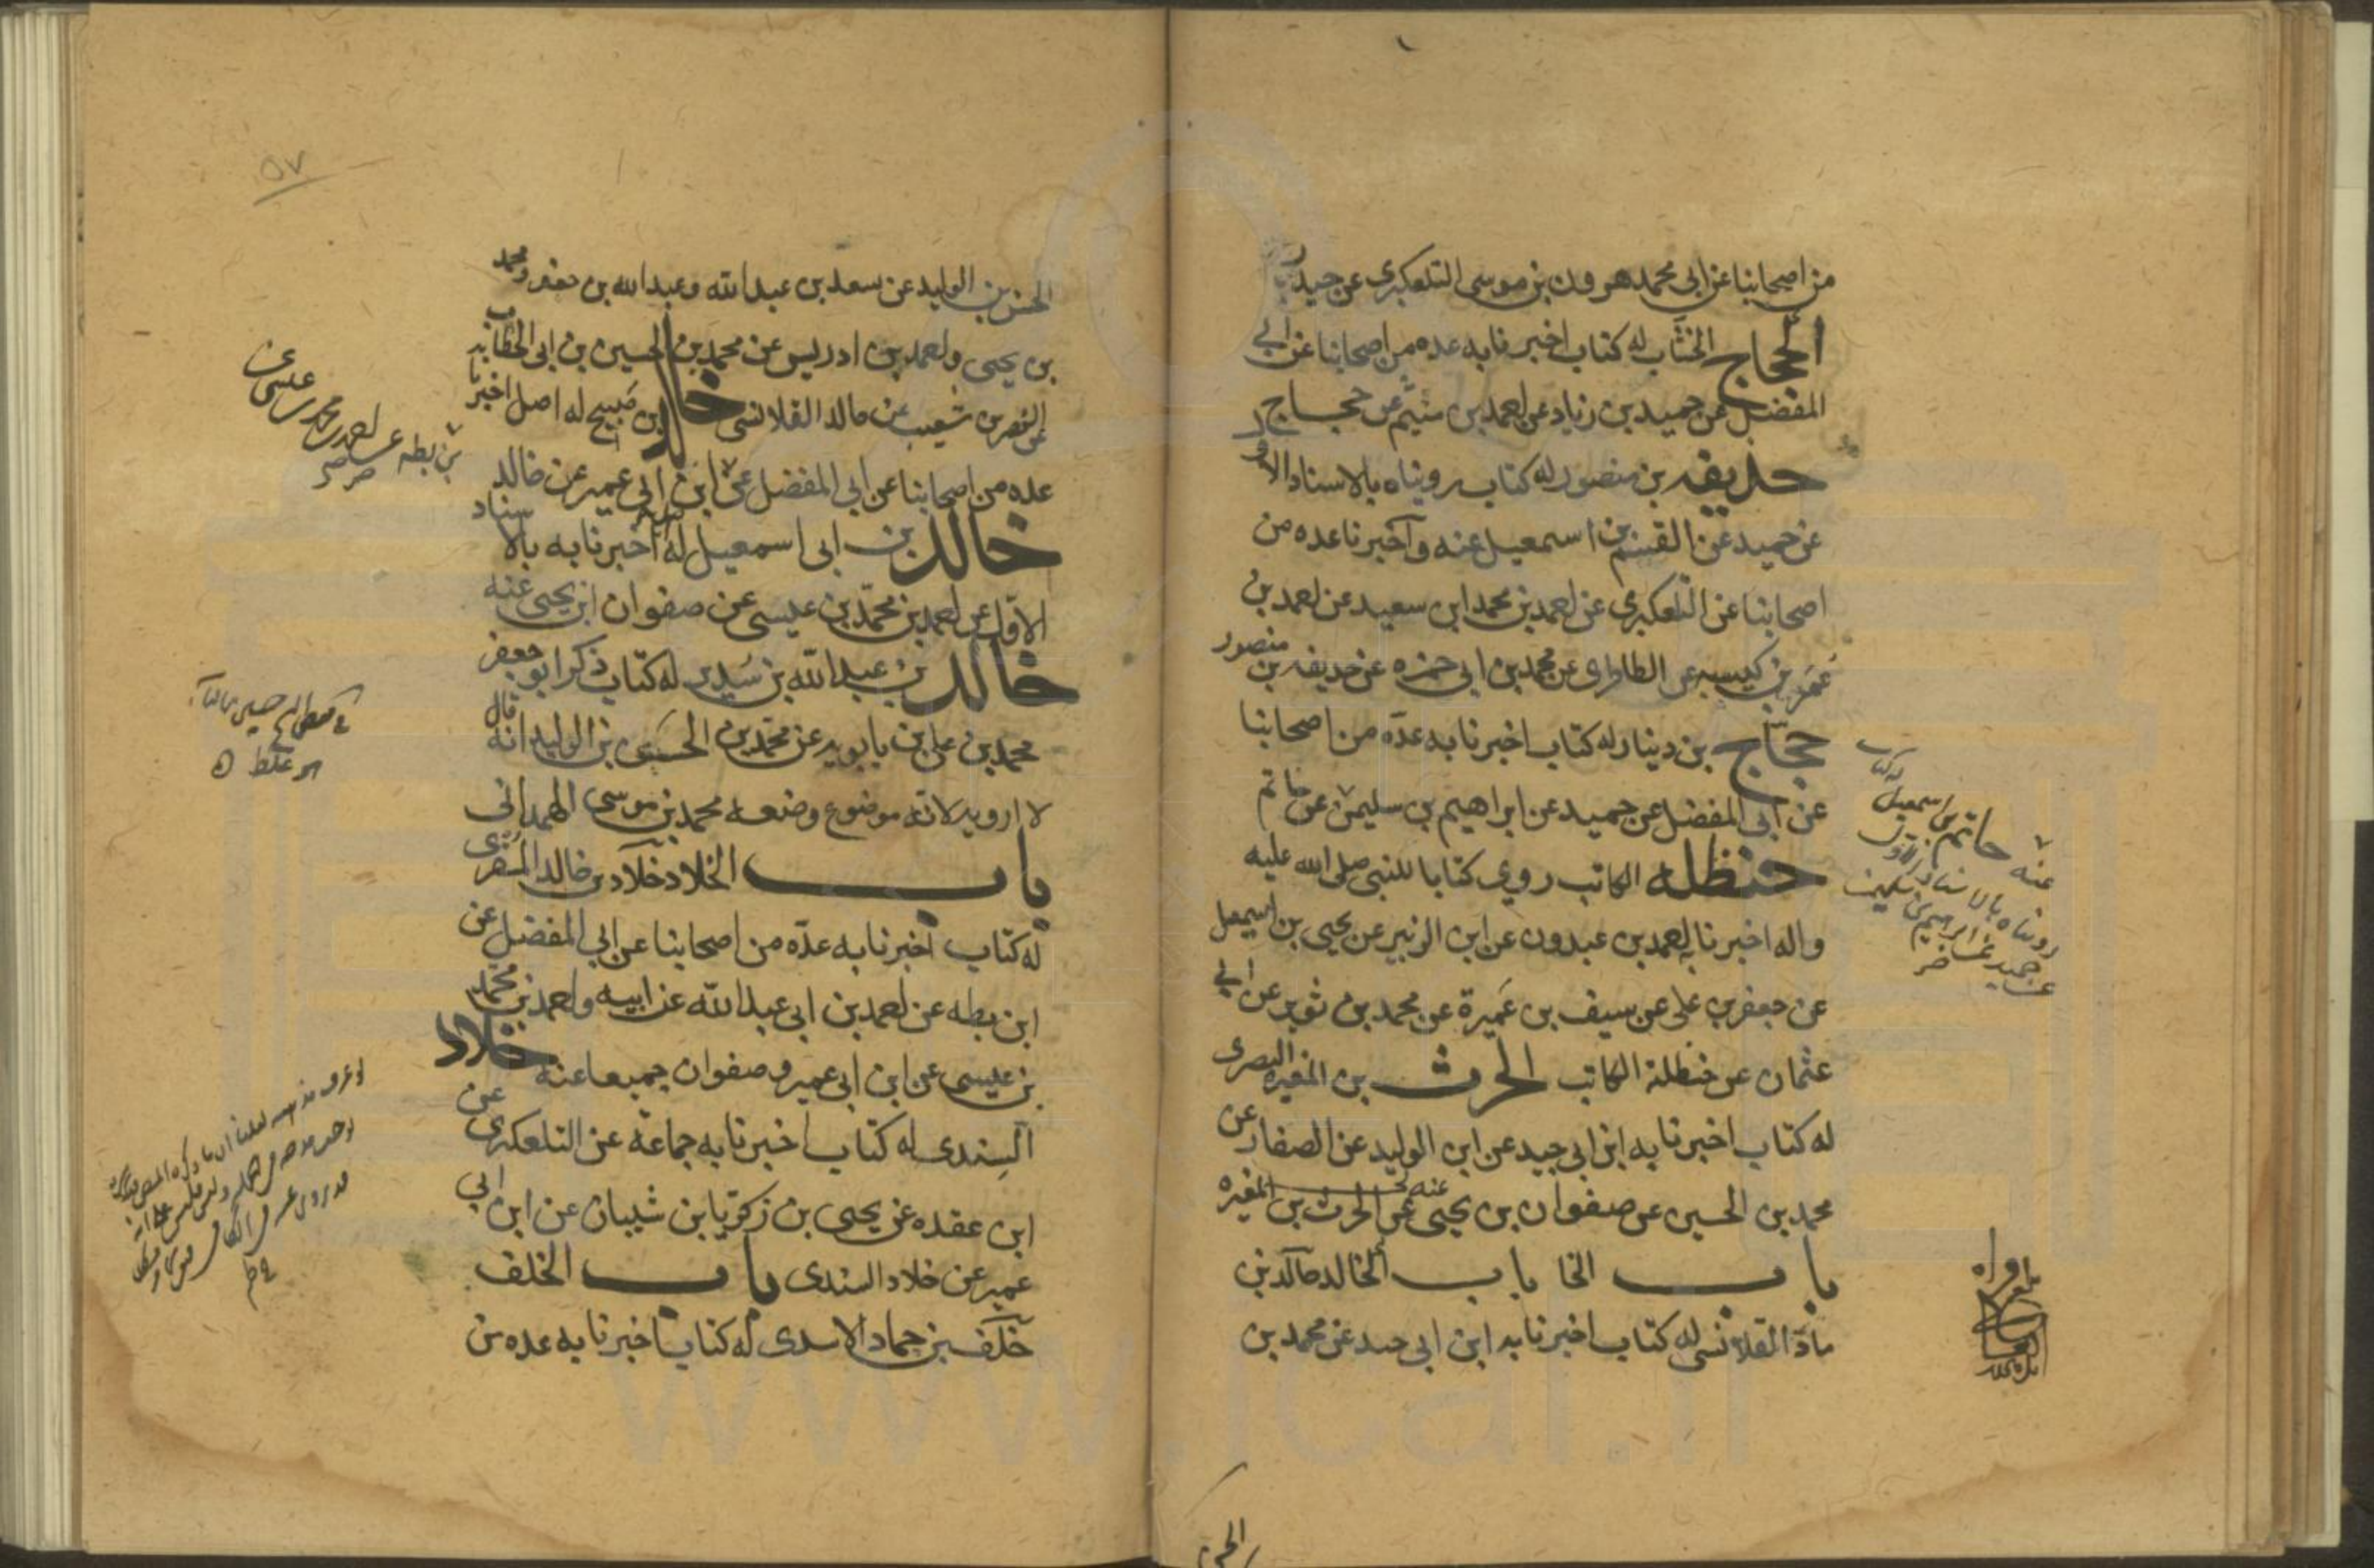 من اصحابنا عن ابي محمد هرون بن موسى التلعكبرى عن حيدر
الحجاج الخشاب له كتاب اخبرنا به عده من اصحابنا عن ابي
المفضل عن حميد بن زياد عن احمد بن ميثم عن حجاج
حذيفه بن منصور له كتاب رويناه بالاسناد الاول
عن حميد عن القسم بن اسمعيل عنه و اخبرنا عده من
اصحابنا عن التلعكبرى عن احمد بن محمد ابن سعيد عن احمد بن
عمر بن كيسبه عن الطاطرى عن محمد بن ابى حمزه عن حذيفه بن منصور
حجاج بن دينار له كتاب اخبرنا به عدّه من اصحابنا
عن ابى المفضل عن حميد عن ابراهيم بن سليمن عن حاتم
عنه حاتم بن اسمعيل له كتاب
رويناه بالاسناد الاول
عن حميد عن ابراهيم بن سليمن
حنظله الكاتب روى كتابا للنبى صلى الله عليه
واله اخبرنا به احمد بن عبدون عن ابن الزبير عن يحيى بن اسمعيل
عن جعفر بن على عن سيف بن عَميرة عن محمد بن ثوير عن ابي
عثمان عن حنظلة الكاتب الحرث بن المغيره البصرى
له كتاب اخبرنا به ابن ابى جيد عن ابن الوليد عن الصفار عن
محمد بن الحسين عن صفوان بن يحيى عنه عن الحرث بن المغيره
باب الخا باب الخالد خالد بن
مادّ القلانسى له كتاب اخبرنا به ابن ابى جيد عن محمد بن
الحسن
٥٧
الحسن بن الوليد عن سعد بن عبد الله و عبد الله بن جعفر و محمد
بن يحيى و احمد بن ادريس عن محمد بن الحسين بن ابى الخطاب
عن النضر بن شعيب عن خالد القلانسى خالد بن صَبيح له اصل اخبرنا به
عده من اصحابنا عن ابى المفضل عن ابن ابى عمير عن خالد
بن بطه عن احمد بن محمد بن عيسى عن
خالد بن ابى اسمعيل له اخبرنا به بالاسناد
الاوّل عن احمد بن محمّد بن عيسى عن صفوان ابن يحيى عنه
خالد بن عبد الله بن سَدير له كتاب ذكر ابو جعفر
محمد بن على بن بابويه عن محمّد بن الحسن بن الوليد انه قال
لا ارويه لانه موضوع وضعه محمد بن موسى الهمدانى
باب الخلاد خلاّد بن خالد المقرى
له كتاب اخبرنا به عدّه من اصحابنا عن ابى المفضل عن
ابن بطه عن احمد بن ابى عبد الله عن ابيه و احمد بن محمد
بن عيسى عن ابن ابى عمير و صفوان جميعا عنه خلاد
السِندى له كتاب اخبرنا به جماعة عن التلعكبرى عن
ابن عقده عن يحيى بن زكريا بن شيبان عن ابن ابي
عمير عن خلاد السندى باب الخلف
خلَف بن حماد الاسدى له كتاب اخبرنا به عده من